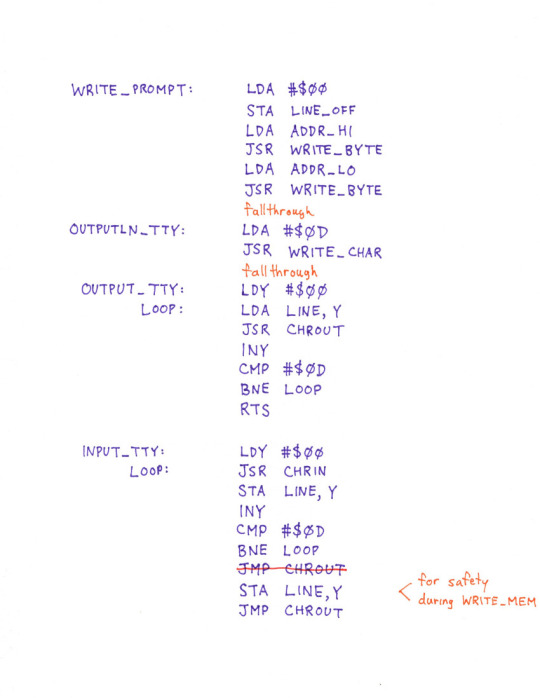 WRITE_PROMPT: LDA #$00
STA LINE_OFF
LDA ADDR_HI
JSR WRITE_BYTE
LDA ADDR_LO
JSR WRITE_BYTE
fallthrough
OUTPUTLN_TTY: LDA #$0D
JSR WRITE_CHAR
fallthrough
OUTPUT_TTY: LDY #$00
LOOP: LDA LINE, Y
JSR CHROUT
INY
CMP #$0D
BNE LOOP
RTS
INPUT_TTY: LDY #$00
LOOP: JSR CHRIN
STA LINE, Y
INY
CMP #$0D
BNE LOOP
JMP CHROUT
STA LINE,Y < for safety
JMP CHROUT during WRITE_MEM